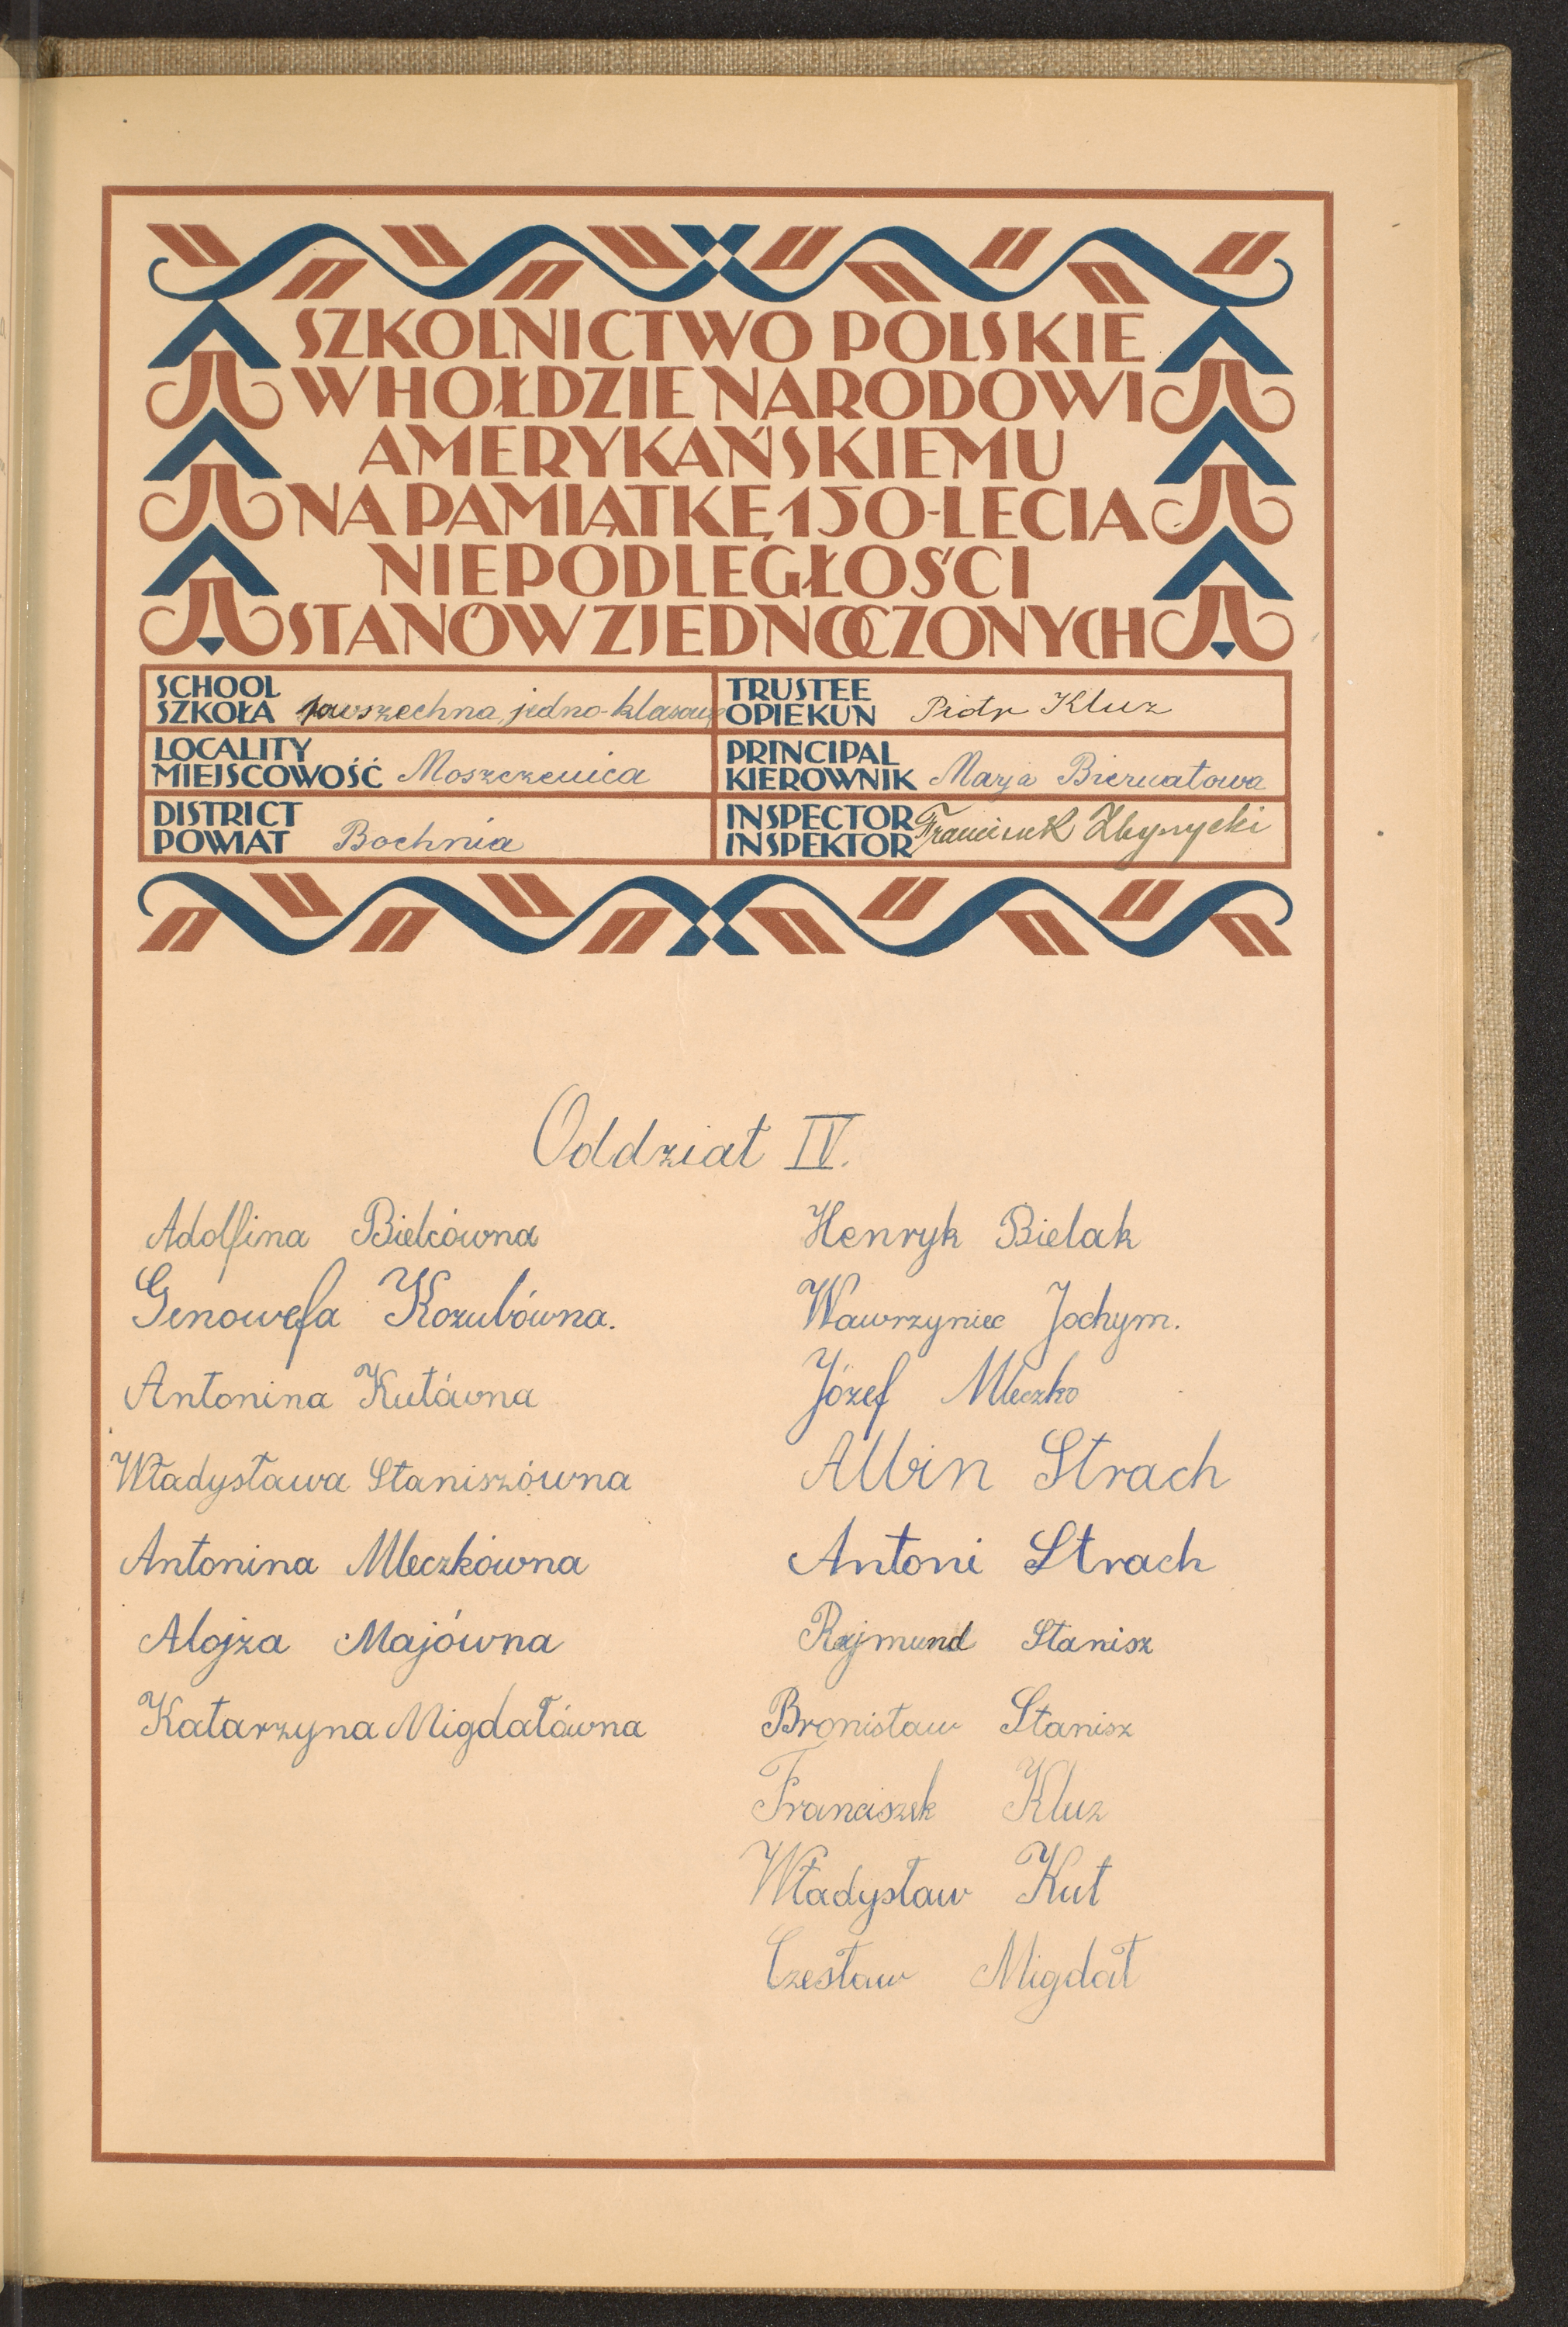 SZKOLNICTWO POLSKIE
W HOŁDZIE NARODOWI
AMERYKAŃSKIEMU
NA PAMIĄTKĘ 150-LECIA
NIEPODLEGŁOŚCI
STANÓW ZJEDNOCZONYCH
SCHOOL
SZKOŁA powszechna jedno-klasowa
LOCALITY
MIEJSCOWOŚĆ Moszczenica
DISTRICT
POWIAT Bochnia
TRUSTEE
OPIEKUN Piotr Kluz
PRINCIPAL
KIEROWNIK Marja Biernatowa
INSPECTOR
INSPEKTOR Franciszek
Oddział IV.
Adolfina Bielcówna
Genowefa Kozubówna.
Antonina Kutówna
Władysława Staniszówna
Antonina Mleczkówna
Alojza Majówna
Katarzyna Migdałówna
Henryk Bielak
Wawrzyniec Jochym.
Józef Mleczko
Albin Strach
Antoni Strach
Rajmund Stanisz
Bronisław Stanisz
Franciszek Kluz
Władysław Kut
Czesław Migdał